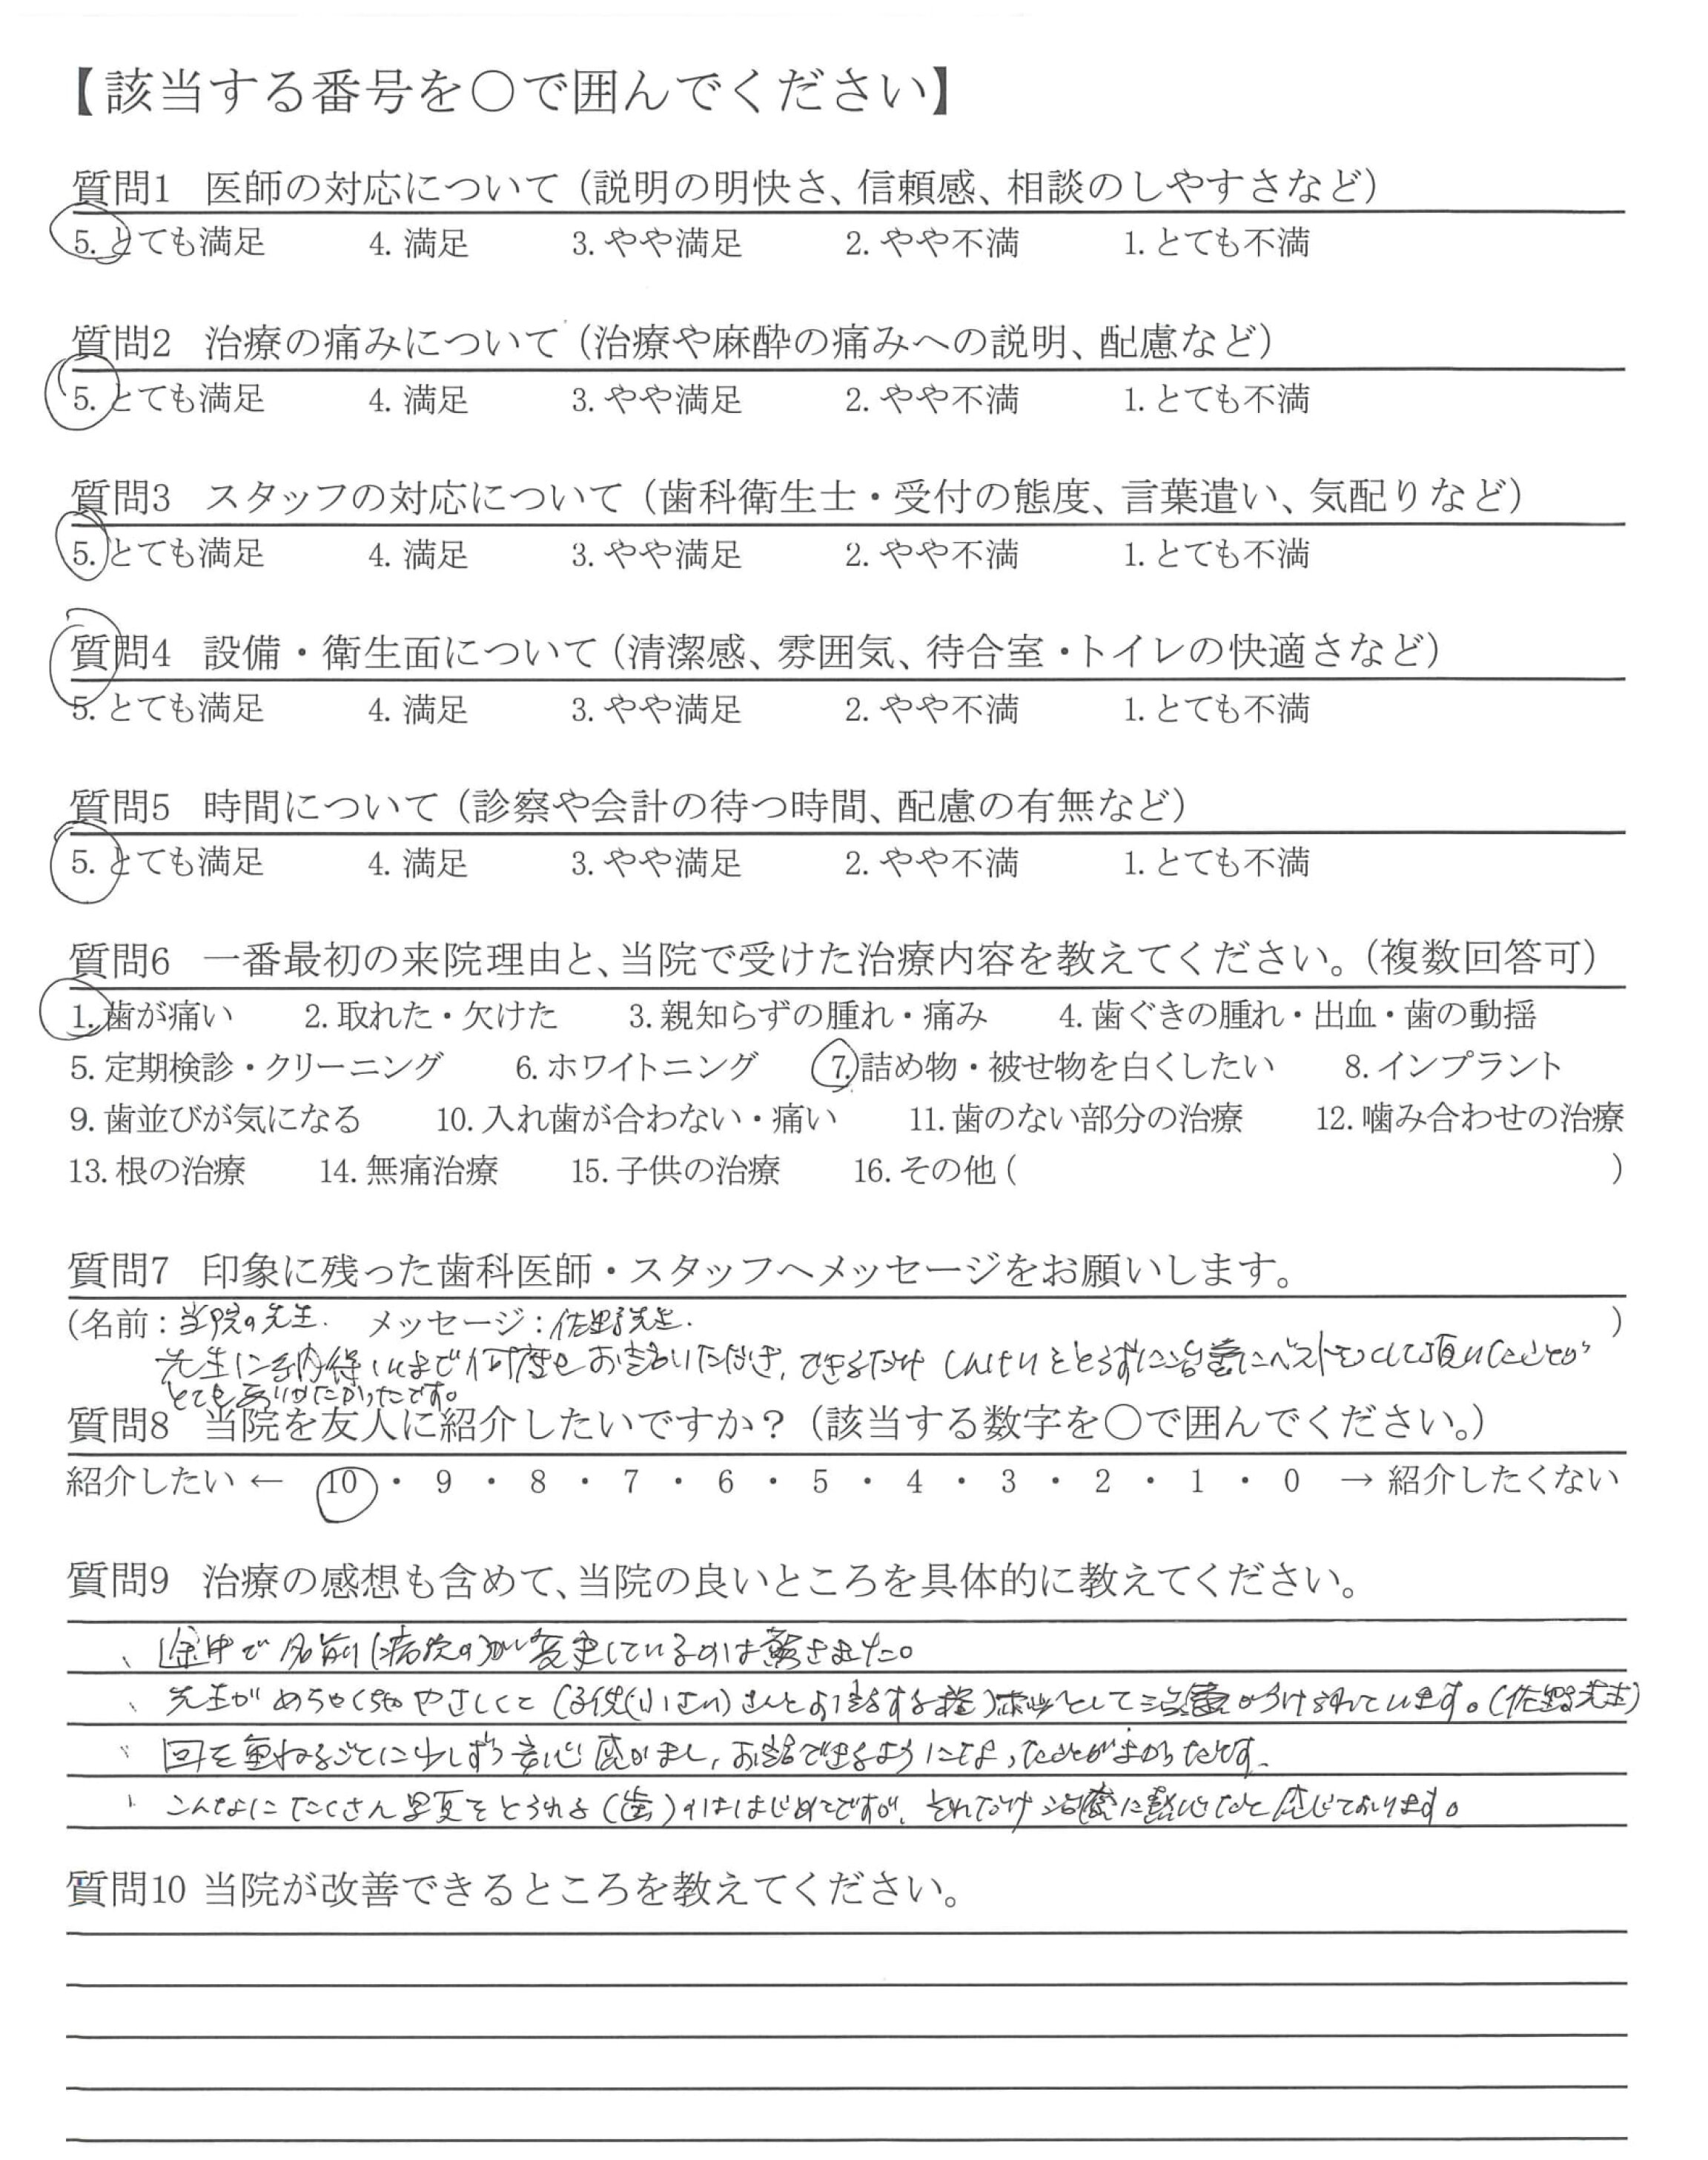 【該当する番号を〇で囲んでください】
質問1 医師の対応について（説明の明快さ、信頼感、相談のしやすさなど）
5. とても満足 4. 満足 3. やや満足 2. やや不満 1. とても不満
質問2 治療の痛みについて（治療や麻酔の痛みへの説明、配慮など）
5. とても満足 4. 満足 3. やや満足 2. やや不満 1. とても不満
質問3 スタッフの対応について（歯科衛生士・受付の態度、言葉遣い、気配りなど）
5. とても満足 4. 満足 3. やや満足 2. やや不満 1. とても不満
質問4 設備・衛生面について（清潔感、雰囲気、待合室・トイレの快適さなど）
5. とても満足 4. 満足 3. やや満足 2. やや不満 1. とても不満
質問5 時間について（診察や会計の待つ時間、配慮の有無など）
5. とても満足 4. 満足 3. やや満足 2. やや不満 1. とても不満
質問6 一番最初の来院理由と、当院で受けた治療内容を教えてください。（複数回答可）
1. 歯が痛い 2. 取れた・欠けた 3. 親知らずの腫れ・痛み 4. 歯ぐきの腫れ・出血・歯の動揺
5. 定期検診・クリーニング 6. ホワイトニング 7. 詰め物・被せ物を白くしたい 8. インプラント
9. 歯並びが気になる 10. 入れ歯が合わない・痛い 11. 歯のない部分の治療 12. 噛み合わせの治療
13. 根の治療 14. 無痛治療 15. 子供の治療 16. その他（ ）
質問7 印象に残った歯科医師・スタッフへメッセージをお願いします。
（名前：当院の先生. メッセージ：佐野先生. ）
先生に納得いくまで何度もお話いただき、できるだけ しんけいをとらずに治療にベストをつくして頂いたことが
とてもありがたかったです。
質問8 当院を友人に紹介したいですか？（該当する数字を〇で囲んでください。）
紹介したい ← 10 ・ 9 ・ 8 ・ 7 ・ 6 ・ 5 ・ 4 ・ 3 ・ 2 ・ 1 ・ 0 → 紹介したくない
質問9 治療の感想も含めて、当院の良いところを具体的に教えてください。
、途中で名前（病院の）が変更しているのは驚きました。
、先生がめちゃくちゃやさしくて（子供（小さい）さんとお話する様）ホッとして治療がうけられています。（佐野先生）
、回を重ねるごとに少しずつ安心感がまし、お話できるようになったことがよかったです。
、こんなにたくさん写真をとられる（歯）のははじめてですが、それだけ治療に熱心だなと感じております。
質問10 当院が改善できるところを教えてください。